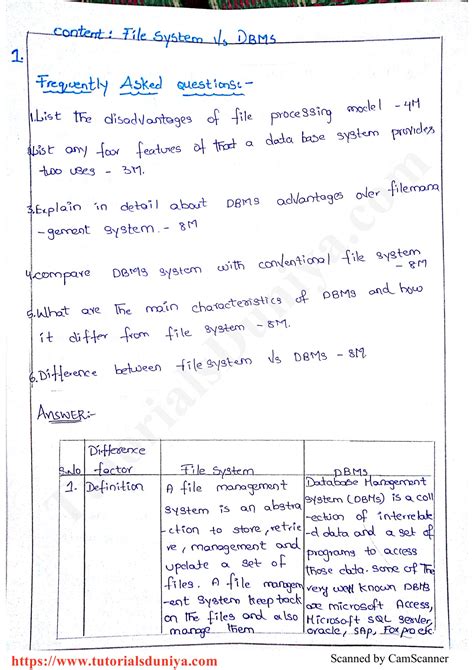 Content: File System Vs DBMS
1.
Frequently Asked questions:-
1.List the disadvantages of file processing model - 4M
List any four features of that a data base system provides
two uses - 3M.
3.Explain in detail about DBMS advantages over filemana
-gement system. - 8M
4.compare DBMS system with conventional file system
- 8M
5.What are the main characteristics of DBMS and how
it differ from file system - 8M.
6.Difference between file system Vs DBMS - 8M.
ANSWER:-
S.No Difference factor File System DBMS
1. Definition
A file management
system is an abstra
-ction to store, retrie
ve, management and
update a set of
files. A file managem
-ent system keep track
on the files and also
manage them
Database Management
System (DBMS) is a coll
-ection of interrelate
-d data and a set of
programs to access
those data. some of the
very well known DBMS
are microsoft Access,
Microsoft SQL Server,
oracle, SAP, Foxpro
TutorialsDuniya.com
https://www.tutorialsduniya.com
Scanned by CamScanner